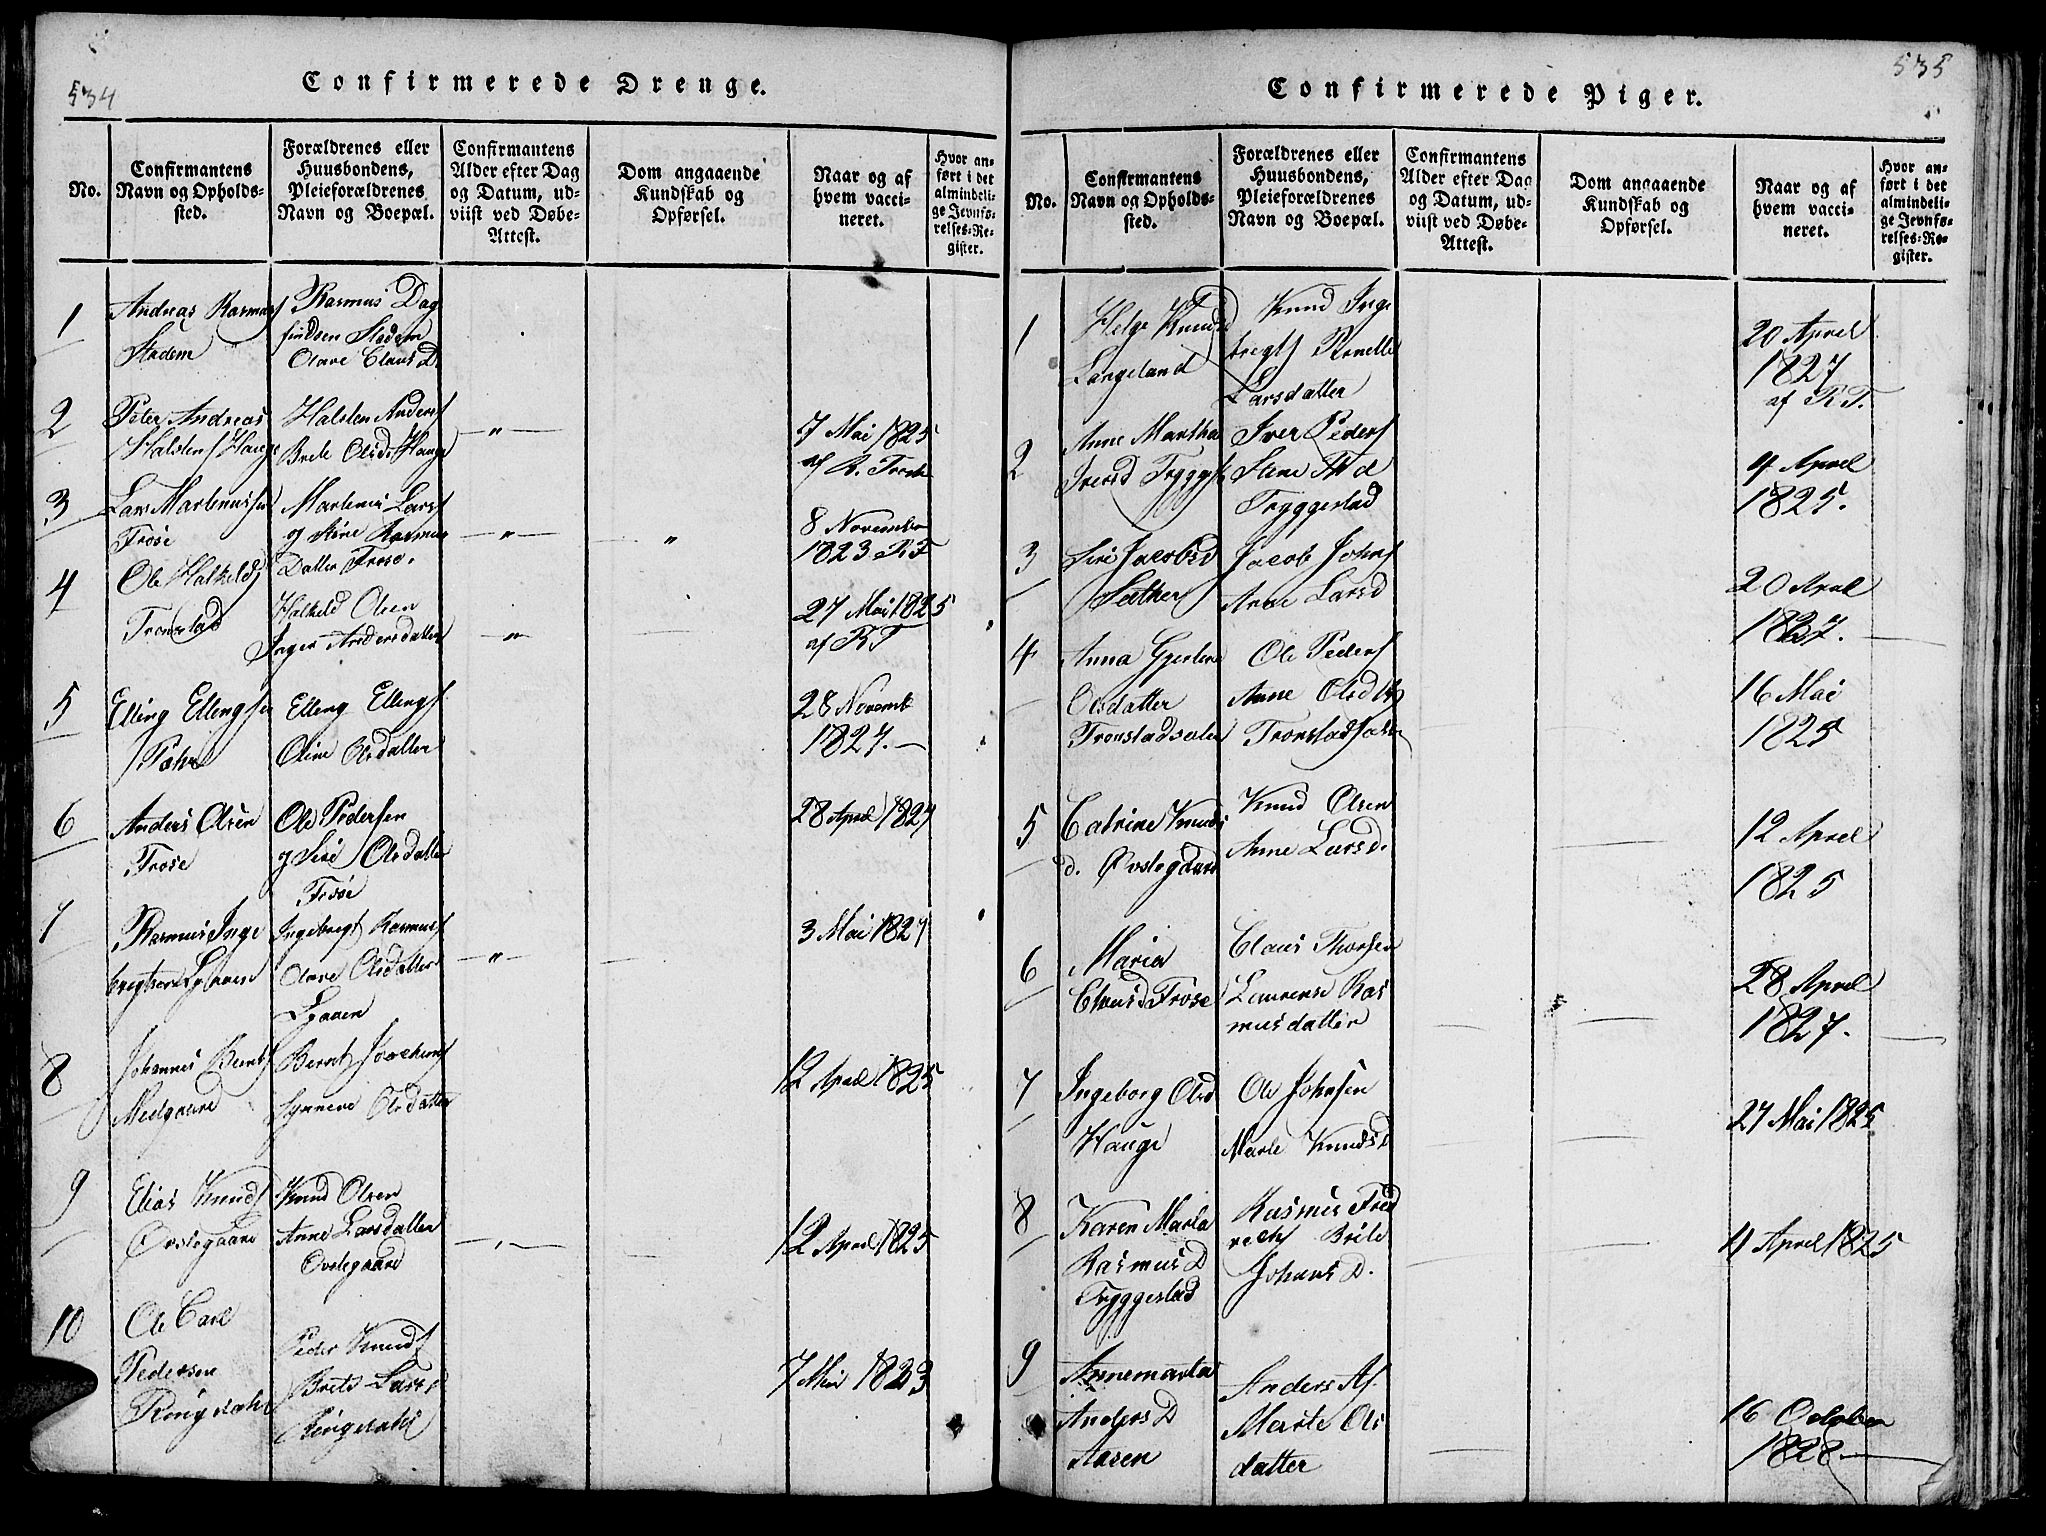 534
Confirmerede Drenge.
No.
Confirmantens
Navn og Opholds-
sted.
Forældrenes eller
Huusbondens,
Pleieforældrenes
Navn og Boepæl.
Confirmantens
Alder efter Dag
og Datum, ud-
viist ved Døbe-
Attest.
Dom angaaende
Kundskab og
Opførsel.
Naar og af
hvem vacci-
neret.
Hvor an-
ført i det
almindeli-
ge Jevnfø-
relses-Re-
gister.
1
Andreas Rasmuss
Stadem
Rasmus Dag
findsen Stadem
Olave Claus D.
2
Peter Andreas
Halstens Hauge
Halsten Anders
Brete Olsd Hauge
7 Mai 1825
af R.
3
Lars Martinussen
Frøse
Martinus Lars
og Stine Rasmus
Datter Frøse.
8 November
1823 RT
4
Ole Halkelds
Tronstad
Halkeld Olsen
Inger Andersdatter
27 Mai 1825
af RT
5
Elling Ellingsen
Elling Ellings
Oline Olsdatter
28 Novemb
1827.
6
Anders Olsen
Frøse
Ole Pedersen
og Siri Olsdatter
Frøse
28 April 1827
7
Rasmus Inge
brigtsen Lyaaen
Ingebrigt Rasmuss
Olave Olsdatter
Lyaaen
3 Mai 1827
8
Johannes Bernts
Medgaard
Bernt Jochums
Synneve Olsdatter
12 April 1825
9
Elias Knuds
Øvstegaard
Knud Olsen
Anne Larsdatter
Ovstegaard
12 April 1825
10
Ole Carl
Pedersen
Ringsdahl
Peder Knuds
Brete Larsd
Ringsdahl
7 Mai 1823
535
Confirmerede Piger.
No.
Confirmantens
Navn og Opholds-
sted.
Forældrenes eller
Huusbondens,
Pleieforældrenes
Navn og Boepæl.
Confirmantens
Alder efter Dag
og Datum, ud-
viist ved Døbe-
Attest.
Dom angaaende
Kundskab og
Opførsel.
Naar og af
hvem vacci-
neret.
Hvor an-
ført i det
almindeli-
ge Jevnfø-
relses-Re-
gister.
1
Helge Knudsd
Langeland
Knud Inge
brigts Pernelle
Larsdatter
20 April
1827
af RT.
2
Anne Martha
Iversd Tryggest
Iver Peders
Tryggestad
4 April
1825.
3
Siri Jacobsd
Sæther
Jacob Johns
Anne Larsd
20 April
1827.
4
Anna Gjertine
Olsdatter
Tronstadsæter
Ole Peders
Anne Olsd
Tronstadsæter
16 Mai
1825
5
Catrine Knuds
d. Øvstegaard
Knud Olsen
Anne Larsd.
12 April
1825
6
Maria
Claus D Frøse
Claus Thorsen
Laurense Ras
mus datter
28 April
1827.
7
Ingeborg Olsd
Hauge
Ole Johnsen
Marte Knuds D
27 Mai 1825
8
Karen Marta
Rasmus D
Tryggestad
Rasmus Fred
rechs Brite
Johans D.
4 April 1825
9
Annemarta
Anders D
Aasen
Anders As.
Marte Ols
datter
16 October
1828